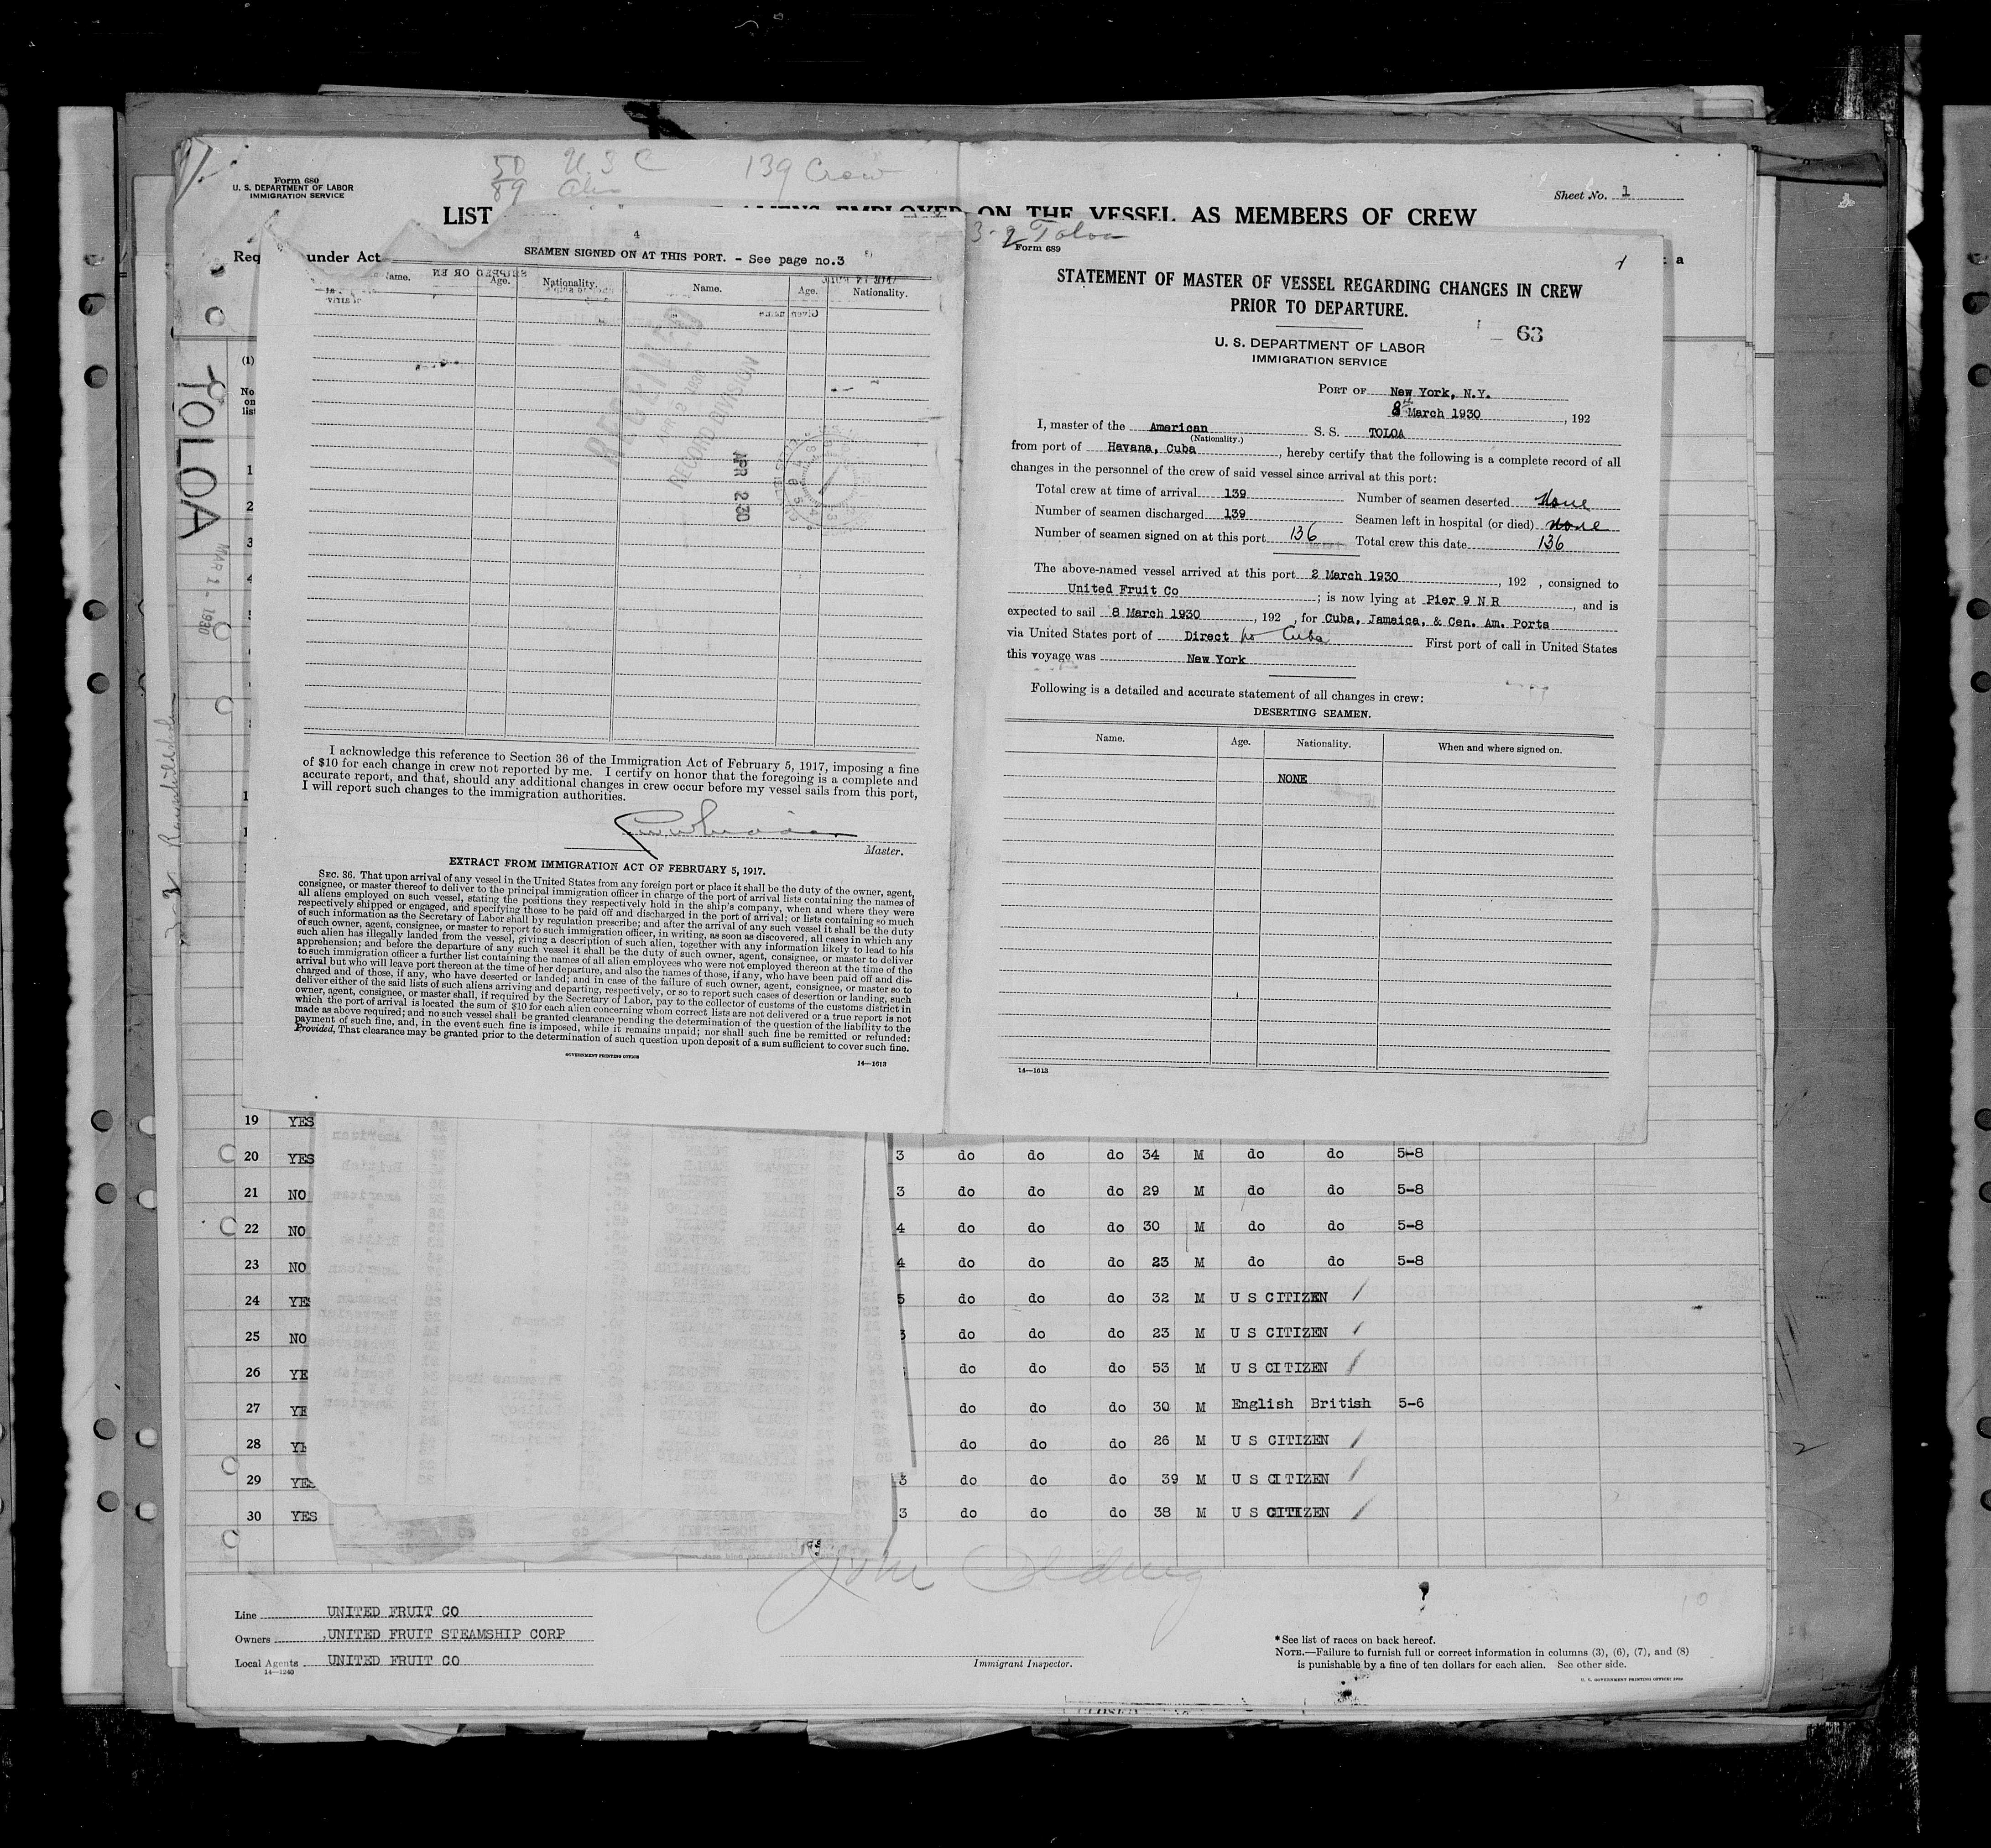 50 U.S.C 139 Crew
89
Form 680
U. S. DEPARTMENT OF LABOR
IMMIGRATION SERVICE
Sheet No. 1
LIST ALIENS EMPLOYED ON THE VESSEL AS MEMBERS OF CREW
under Act
TOLOA
MAR 1 - 1930
4
SEAMEN SIGNED ON AT THIS PORT. - See page no.3
Name. Age. Nationality. Name. Age. Nationality.
RECEIVED
APR 2 1930
RECORD DIVISION
APR 2 30
I acknowledge this reference to Section 36 of the Immigration Act of February 5, 1917, imposing a fine
of $10 for each change in crew not reported by me. I certify on honor that the foregoing is a complete and
accurate report, and that, should any additional changes in crew occur before my vessel sails from this port,
I will report such changes to the immigration authorities.
Master.
EXTRACT FROM IMMIGRATION ACT OF FEBRUARY 5, 1917.
SEC. 36. That upon arrival of any vessel in the United States from any foreign port or place it shall be the duty of the owner, agent,
consignee, or master thereof to deliver to the principal immigration officer in charge of the port of arrival lists containing the names of
all aliens employed on such vessel, stating the positions they respectively hold in the ship's company, when and where they were
respectively shipped or engaged, and specifying those to be paid off and discharged in the port of arrival; or lists containing so much
of such information as the Secretary of Labor shall by regulation prescribe; and after the arrival of any such vessel it shall be the duty
of such owner, agent, consignee, or master to report to such immigration officer, in writing, as soon as discovered, all cases in which any
such alien has illegally landed from the vessel, giving a description of such alien, together with any information likely to lead to his
apprehension; and before the departure of any such vessel it shall be the duty of such owner, agent, consignee, or master to deliver
to such immigration officer a further list containing the names of all alien employees who were not employed thereon at the time of the
arrival but who will leave port thereon at the time of her departure, and also the names of those, if any, who have been paid off and dis-
charged and of those, if any, who have deserted or landed; and in case of the failure of such owner, agent, consignee, or master so to
deliver either of the said lists of such aliens arriving and departing, respectively, or so to report such cases of desertion or landing, such
owner, agent, consignee, or master shall, if required by the Secretary of Labor, pay to the collector of customs of the customs district in
which the port of arrival is located the sum of $10 for each alien concerning whom correct lists are not delivered or a true report is not
made as above required; and no such vessel shall be granted clearance pending the determination of the question of the liability to the
payment of such fine, and, in the event such fine is imposed, while it remains unpaid; nor shall such fine be remitted or refunded:
Provided, That clearance may be granted prior to the determination of such question upon deposit of a sum sufficient to cover such fine.
GOVERNMENT PRINTING OFFICE
14—1613
3-2 Toloa
Form 689
1
STATEMENT OF MASTER OF VESSEL REGARDING CHANGES IN CREW
PRIOR TO DEPARTURE.
63
U. S. DEPARTMENT OF LABOR
IMMIGRATION SERVICE
PORT OF New York, N.Y.
8 March 1930, 192
I, master of the American S. S. TOLOA
(Nationality.)
from port of Havana, Cuba, hereby certify that the following is a complete record of all
changes in the personnel of the crew of said vessel since arrival at this port:
Total crew at time of arrival 139 Number of seamen deserted None
Number of seamen discharged 139 Seamen left in hospital (or died) None
Number of seamen signed on at this port 136 Total crew this date 136
The above-named vessel arrived at this port 2 March 1930, 192 , consigned to
United Fruit Co ; is now lying at Pier 9 N R, and is
expected to sail 8 March 1930, 192 , for Cuba, Jamaica, & Cen. Am. Ports
via United States port of Direct to Cuba First port of call in United States
this voyage was New York
Following is a detailed and accurate statement of all changes in crew:
DESERTING SEAMEN.
Name. Age. Nationality. When and where signed on.
NONE
14—1613
19 YES
20 YES 3 do do do 34 M do do 5-8
21 NO 3 do do do 29 M do do 5-8
22 NO 4 do do do 30 M do do 5-8
23 NO 4 do do do 23 M do do 5-8
24 YES 5 do do do 32 M U S CITIZEN
25 NO 3 do do do 23 M U S CITIZEN
26 YE do do do 53 M U S CITIZEN
27 YE do do do 30 M English British 5-6
28 YE do do do 26 M U S CITIZEN
29 YES 3 do do do 39 M U S CITIZEN
30 YES 3 do do do 38 M U S CITIZEN
Line UNITED FRUIT CO
Owners UNITED FRUIT STEAMSHIP CORP
Local Agents UNITED FRUIT CO
14—1240
Immigrant Inspector.
*See list of races on back hereof.
NOTE.—Failure to furnish full or correct information in columns (3), (6), (7), and (8)
is punishable by a fine of ten dollars for each alien. See other side.
U. S. GOVERNMENT PRINTING OFFICE